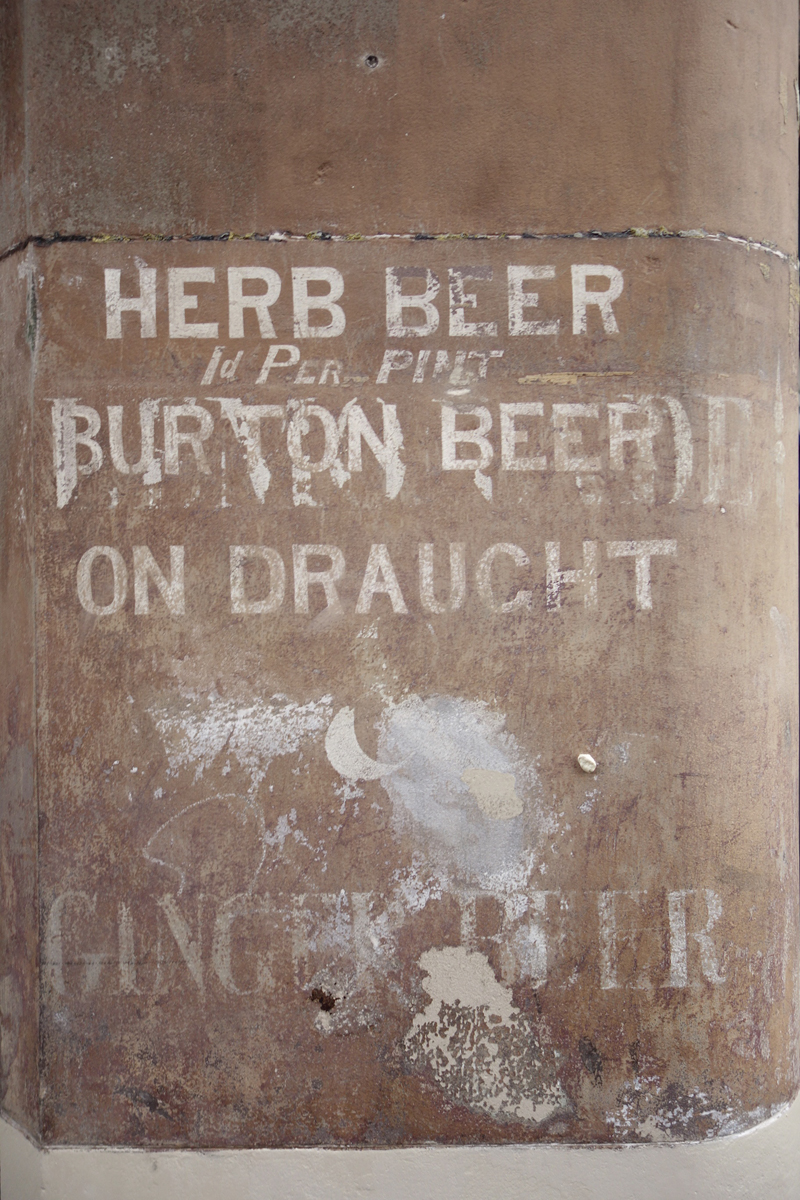 HERB BEER
1d PER PINT
BURTON BEER
ON DRAUCHT
GINGER BEER